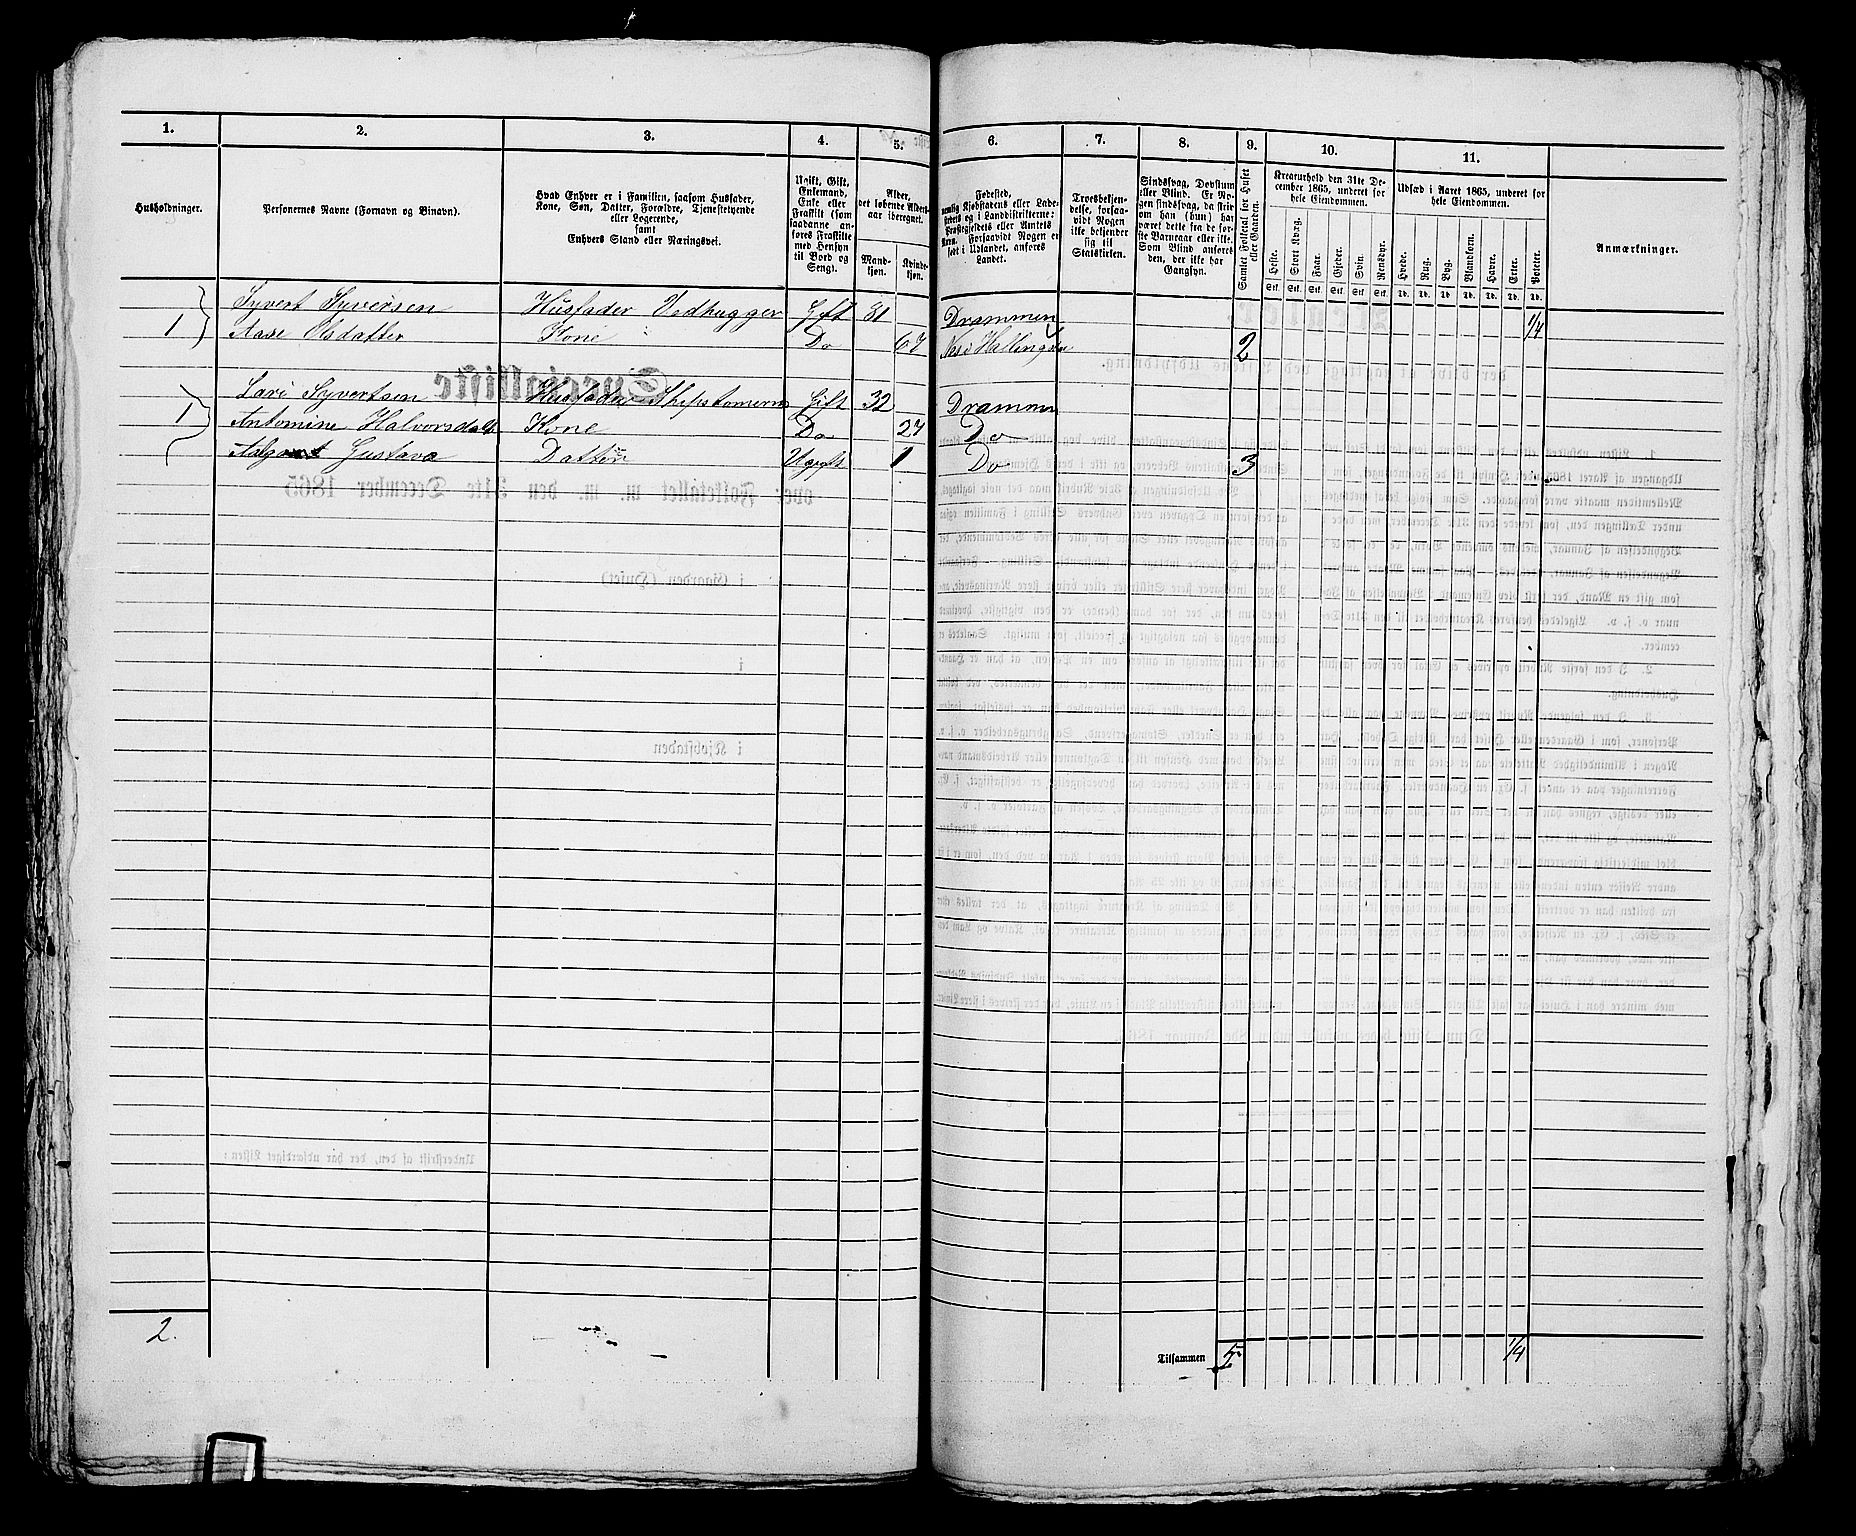 1. 2. 3. 4. 5. 6. 7. 8. 9. 10. 11.
Husholdninger.
Personernes Navne (Fornavn og Binavn).
Hvad Enhver er i Familien, saasom Husfader,
Kone, Søn, Datter, Forældre, Tjenestetyende
eller Logerende,
samt
Enhvers Stand eller Næringsvei.
Ugift, Gift,
Enkemand,
Enke eller
Fraskilt (som
saadanne an-
føres Fraskilte
med Hensyn
til Bord og
Seng).
Alder,
det løbende Alders-
aar iberegnet.
Mand-
kjøn.
Kvinde-
kjøn.
Fødested,
nemlig Kjøbstadens eller Lade-
stedets og i Landdistrikterne:
Præstegjeldets eller Amtets
Navn. Forsaavidt Nogen er
født i Udlandet, anføres
Landet.
Troesbekjen-
delse, forsaa-
vidt Nogen
ikke bekjender
sig til
Statskirken.
Sindssvag, Døvstum
eller Blind. Er No-
gen sindssvag, da skriv
om han (hun) har
været dette fra de før-
ste Barneaar eller ikke.
Som Blind anføres
den, der ikke har
Gangsyn.
Samlet Folketal for Huset
eller Gaarden.
Kreaturhold den 31te De-
cember 1865, underet for
hele Eiendommen.
Heste. Stort Kvæg. Faar. Gjeder. Svin. Rensdyr.
Stk. Stk. Stk. Stk. Stk. Stk.
Udsæd i Aaret 1865, underet for
hele Eiendommen.
Hvede. Rug. Byg. Blandkorn. Havre. Erter. Poteter.
Td. Td. Td. Td. Td. Td. Td.
Anmærkninger.
Syvert Syversen Husfader Vedhugger Gift 81 Drammen 1/4
1 Aase Olsdatter Kone Do 67 Nes i Hallingdal 2
Syvertsen Husfader Gift 32 Drammen
1 Antomine Halvorsdatt Kone Do 27 Do
Gustava Datter Ugift 1 Do 3
2.
Tilsammen 5 1/4